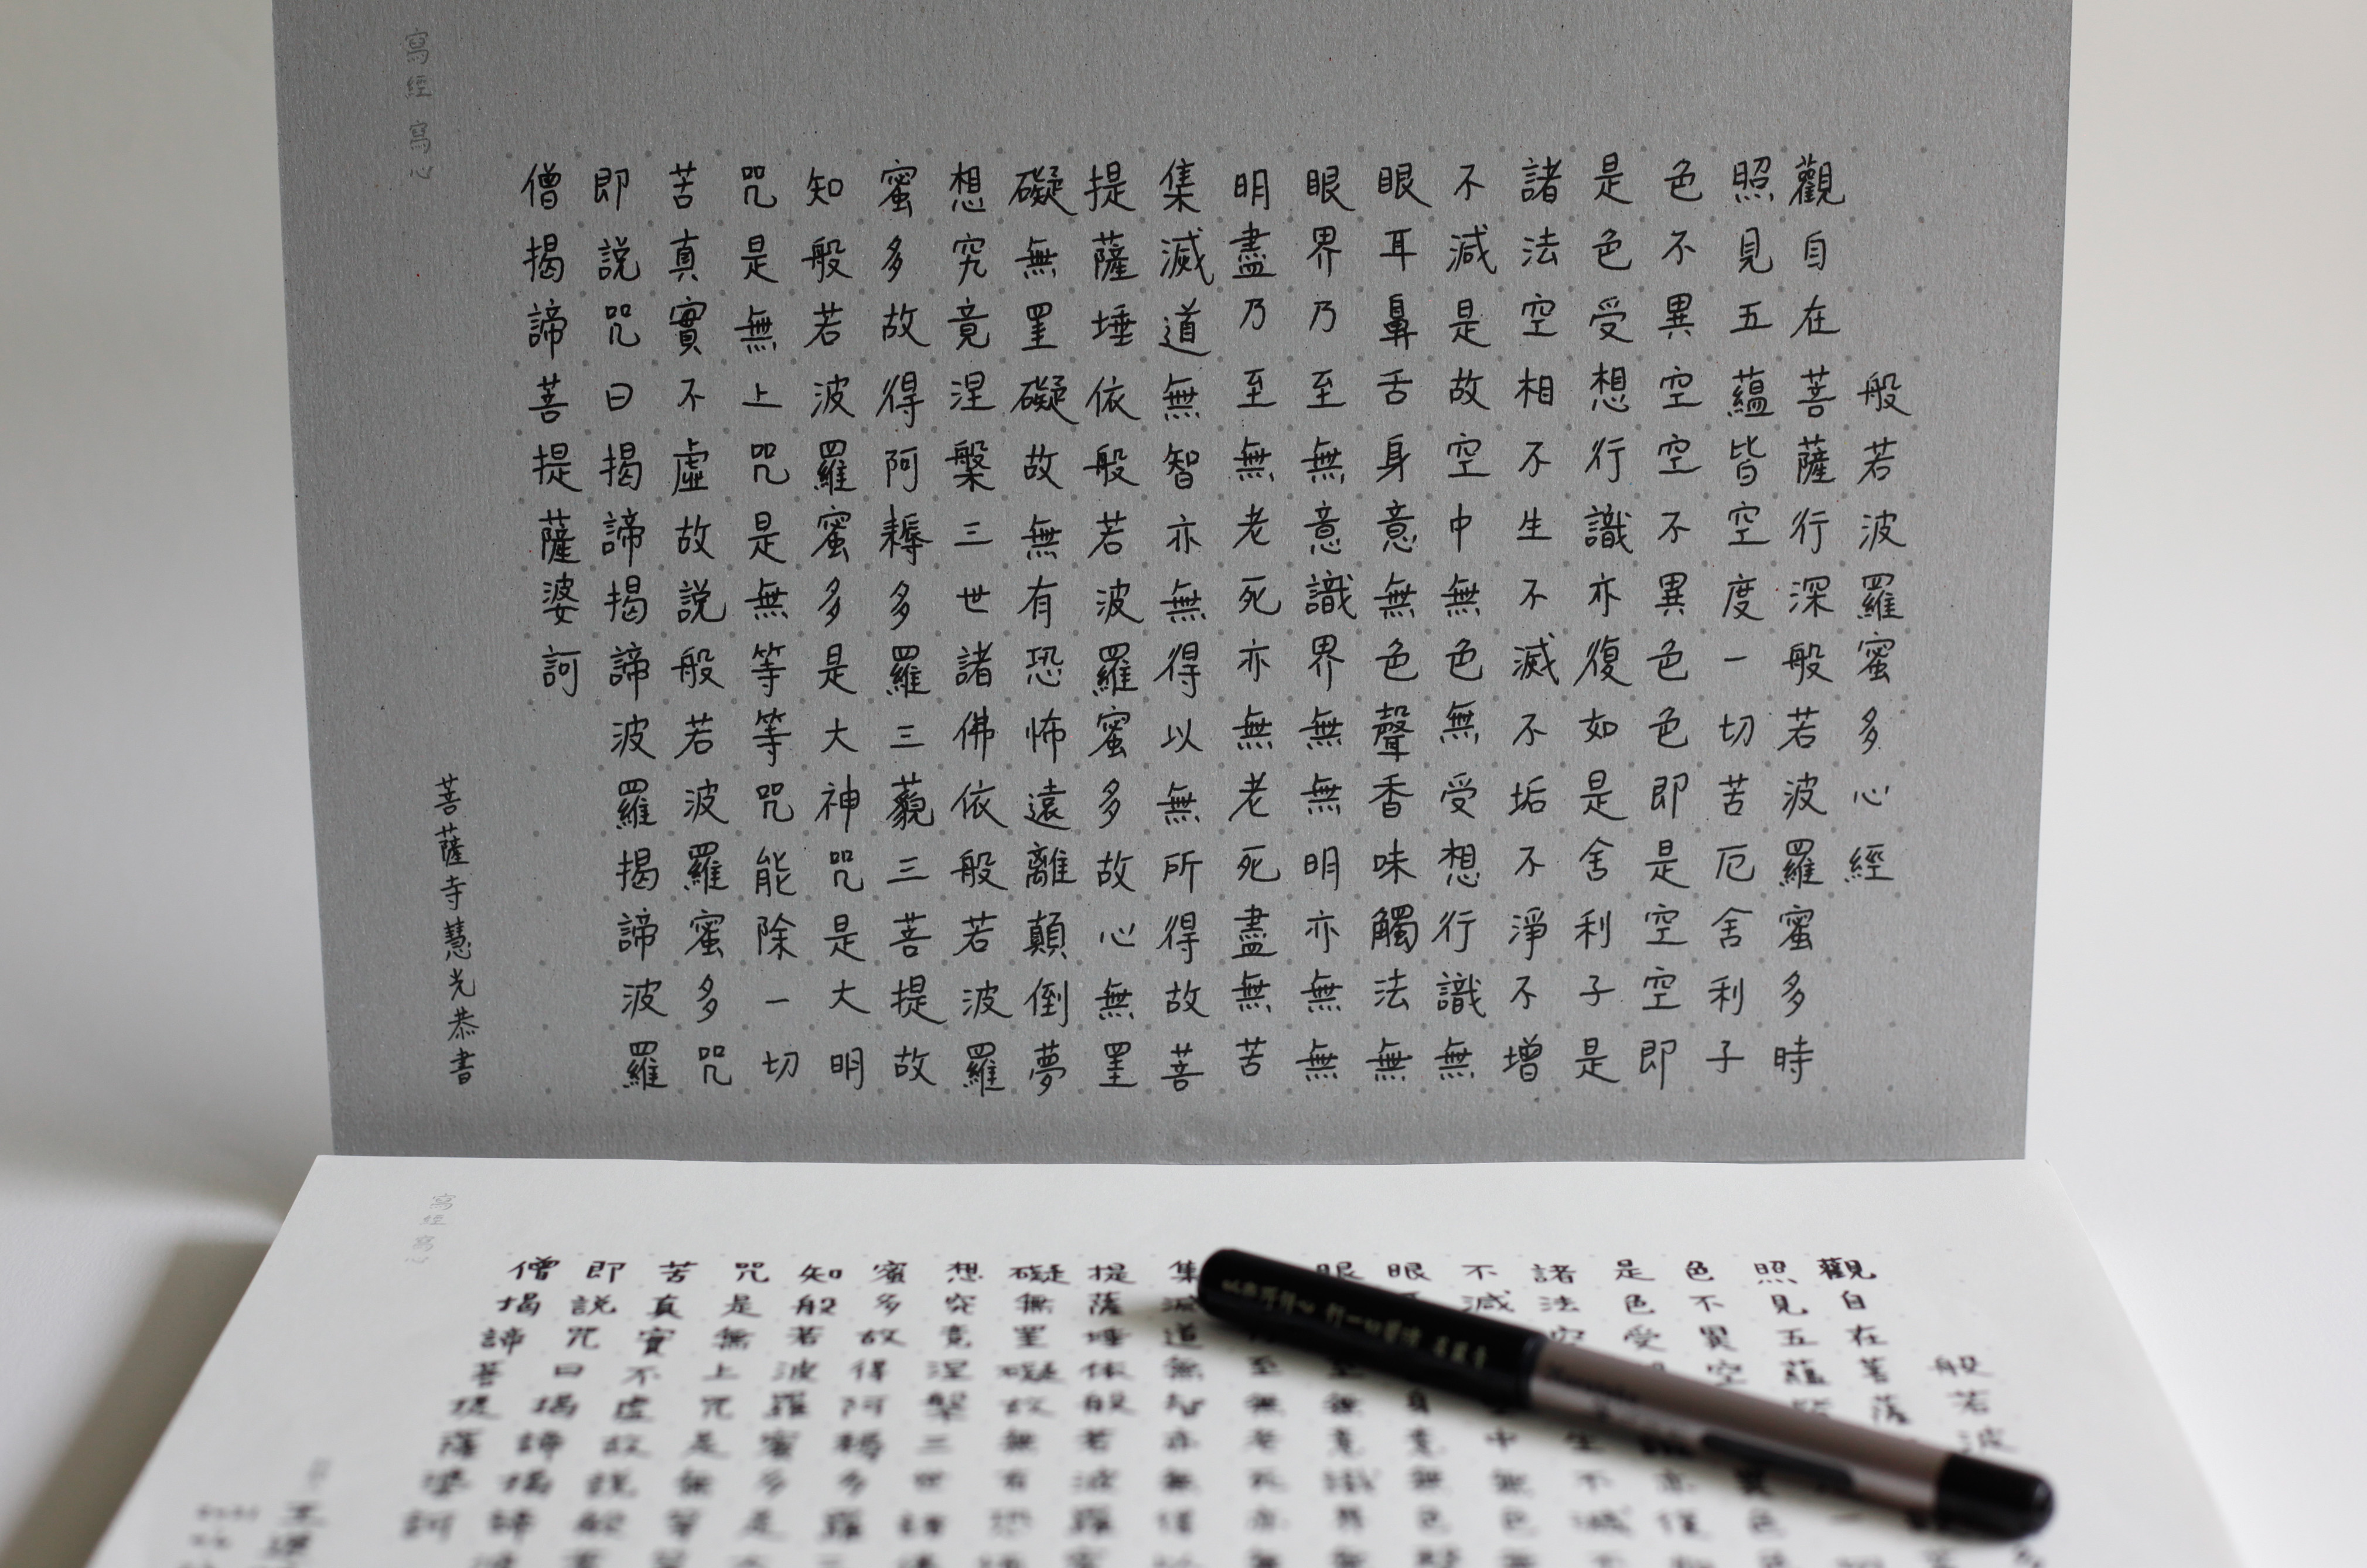 般若波羅蜜多心經
觀自在菩薩行深般若波羅蜜多時
照見五蘊皆空度一切苦厄舍利子
色不異空空不異色色即是空空即
是色受想行識亦復如是舍利子是
諸法空相不生不滅不垢不淨不增
不減是故空中無色無受想行識無
眼耳鼻舌身意無色聲香味觸法無
眼界乃至無意識界無無明亦無無
明盡乃至無老死亦無老死盡無苦
集滅道無智亦無得以無所得故菩
提薩埵依般若波羅蜜多故心無罣
礙無罣礙故無有恐怖遠離顛倒夢
想究竟涅槃三世諸佛依般若波羅
蜜多故得阿耨多羅三藐三菩提故
知般若波羅蜜多是大神咒是大明
咒是無上咒是無等等咒能除一切
苦真實不虛故説般若波羅蜜多咒
即説咒曰揭諦揭諦波羅揭諦波羅
僧揭諦菩提薩婆訶
菩薩寺慧光恭書
寫經 寫心
般若波
觀自在菩薩
照見五蘊
色不異空
是色受
諸法空
不減
眼
眼
集滅道無智亦無得
提薩埵依般若波羅
礙無罣礙故無有恐
想究竟涅槃三世諸
蜜多故得阿耨多羅
知般若波羅蜜多是
咒是無上咒是無等
苦真實不虛故説般
即説咒曰揭諦揭諦
僧揭諦菩提薩婆訶
寫經 寫心